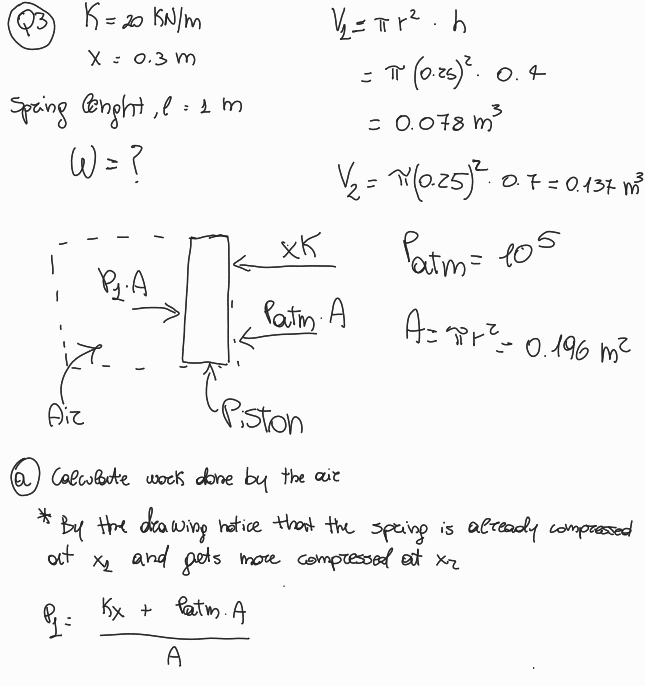 Q3
K = 20 KN/m
x = 0.3 m
Spring lenght, l = 1 m
W = ?
V1 = π r² · h
= π (0.25)² · 0.4
= 0.078 m³
V2 = π(0.25)² · 0.7 = 0.137 m³
xK
P1·A
Patm·A
Air
Piston
Patm = 10⁵
A = πr² = 0.196 m²
a Calculate work done by the air
* By the drawing notice that the spring is already compressed
at x1 and gets more compressed at x2
P1 = Kx + Patm·A
A